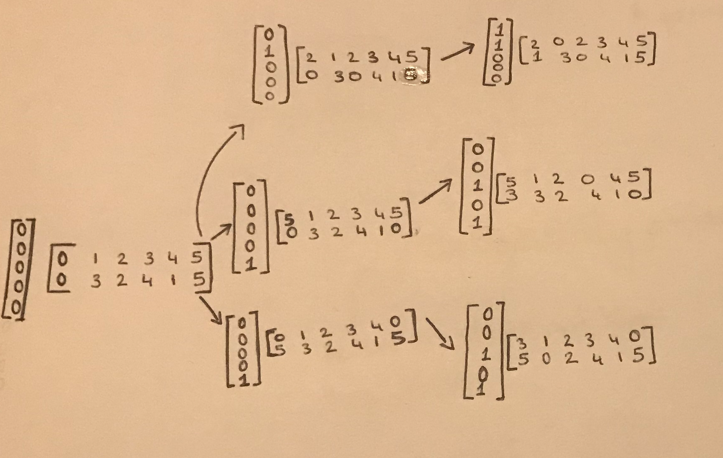 0
1
0
0
0
2 1 2 3 4 5
0 3 0 4 1
1
1
0
0
0
2 0 2 3 4 5
1 3 0 4 1 5
0
0
0
0
0
0 1 2 3 4 5
0 3 2 4 1 5
0
0
0
0
1
5 1 2 3 4 5
0 3 2 4 1 0
0
0
1
0
1
5 1 2 0 4 5
3 3 2 4 1 0
0
0
0
0
1
0 1 2 3 4 0
5 3 2 4 1 5
0
0
1
0
1
3 1 2 3 4 0
5 0 2 4 1 5